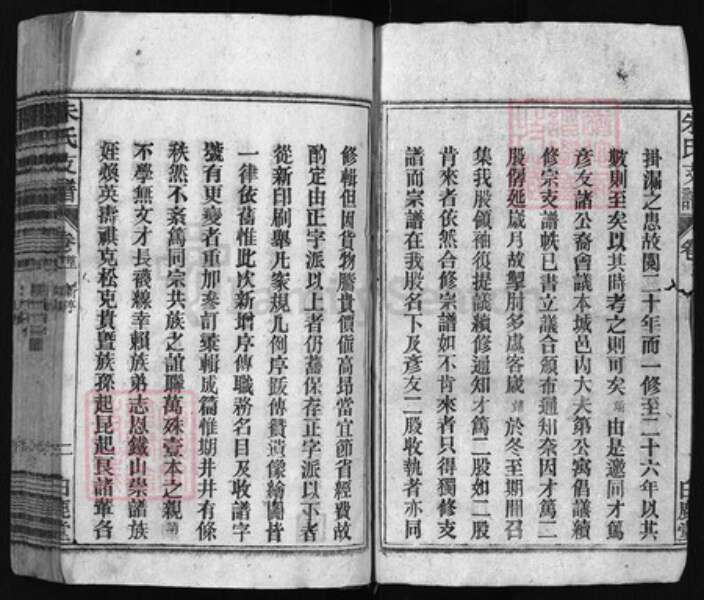 掛漏之患故閱二十年而一修至二十六年以其
數則至矣以其時考之則可矣 由是邀同才萬
彥友諸公裔會議本城邑內大夫第公寓倡議續
修宗支譜帙已書立議合頒布通知奈因才萬二
股僭延歲月故掣肘多虞客歲 於冬至期間召
集我股領袖須提議續修通知才萬二股如二股
肯來者依然合修宗譜如不肯來者只得獨修支
譜而宗譜在我股名下及彥友二股收執者亦同
修輯但因貨物騰貴價值高昂當宜節省經費故
酌定由正字派以上者仍舊保存正字派以下者
從新印刷舉凡家規凡例序跋傳贊遺像繪圖皆
一律依舊惟此次新增序傳職務名目及收譜字
號有更變者重加參訂彙輯成篇惟期井井有條
秩然不紊萬同宗共族之誼聯萬殊壹本之親 第
不學無文才長襪線幸賴族弟志恩鐵山崇諸族
姪煥英壽祺克松克貴暨族孫起昆起良諸輩各
朱氏支譜
卷
二
白鹿堂
朱氏支譜 卷
白鹿堂